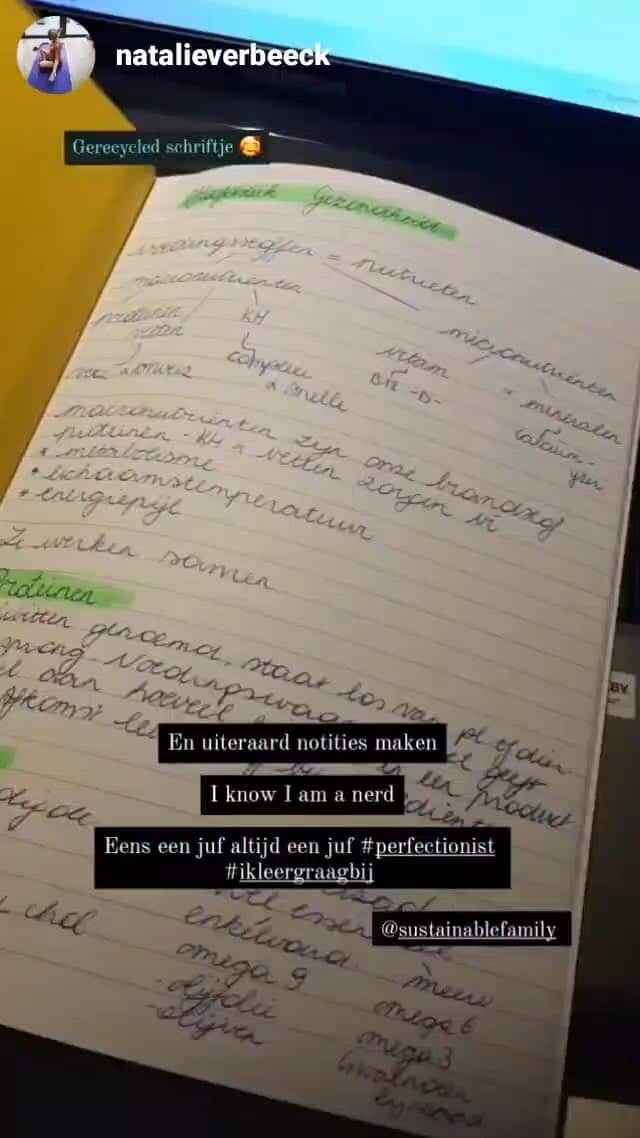 natalieverbeeck
Gerecycled schriftje
Gezondheid
voedingsstoffen = nutriënten
macronutriënten
micronutriënten
proteinen
vetten
KH
vitam
mineralen
complexe
& snelle
B12 - D -
calcium -
ijzer
macronutriënten zijn onze brandstof
proteinen - KH & vetten zorgen vr
* metabolisme
* lichaamstemperatuur
* energiepijl
Ze werken samen
Proteinen
genoemd, staat los van pl of dier
En uiteraard notities maken
I know I am a nerd
Eens een juf altijd een juf #perfectionist
#ikleergraagbij
@sustainablefamily
enkelvoud
meerv
omega 9
omega 6
- olijfolie
omega 3
- olijven